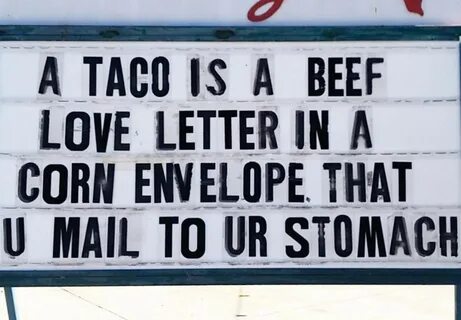 A TACO IS A BEEF
LOVE LETTER IN A
CORN ENVELOPE THAT
U MAIL TO UR STOMACH